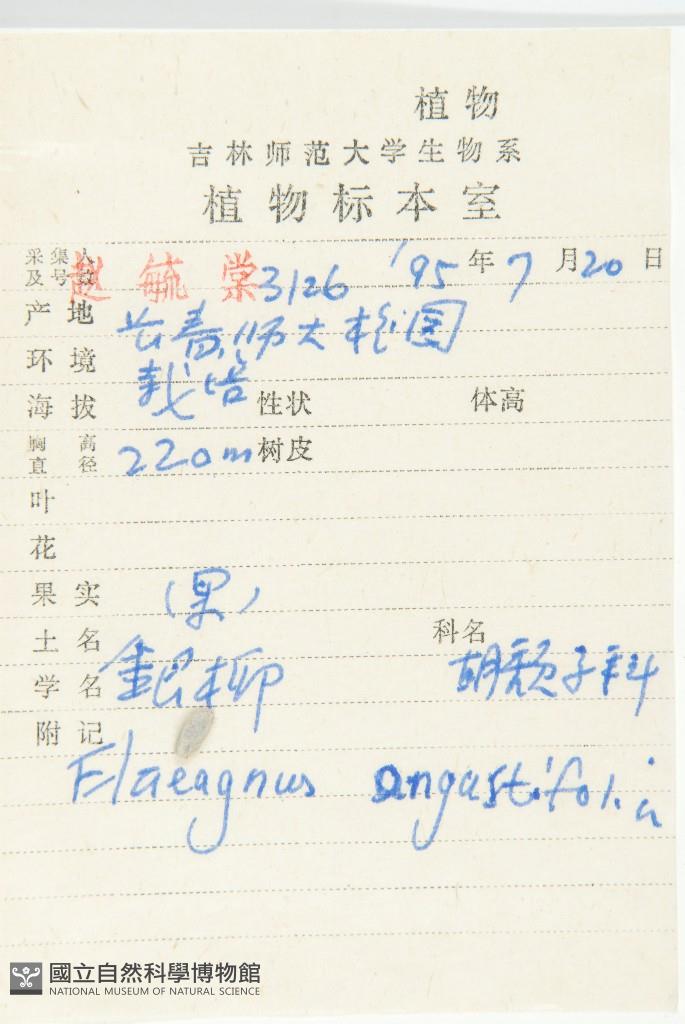 植物
吉林师范大学生物系
植物标本室
采集人及号数 赵毓棠 3126 '95年7月20日
产地 长春师大校园
环境 栽培
海拔 性状 体高
胸高直径 220m 树皮
叶
花
果实 (果)
土名 科名
学名 銀柳 胡颓子科
附记
Elaeagnus angustifolia
國立自然科學博物館
NATIONAL MUSEUM OF NATURAL SCIENCE